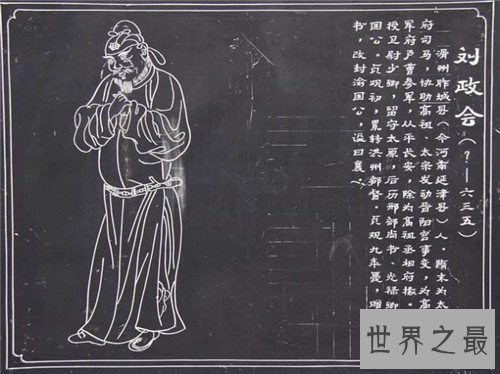 刘政会（？—六三五）
滑州胙城县（今河南延津县）人。隋末为太
府司马，协助高祖、太宗发动晋阳宫事变，为高
军府户曹参军，从平长安，除为高祖丞相府掾。
授卫尉少卿，留守太原，后历邢部尚书、光禄卿
国公。贞观初，累转洪州都督。贞观九年薨，赠
书，改封渝国公，谥曰襄。
世界之最